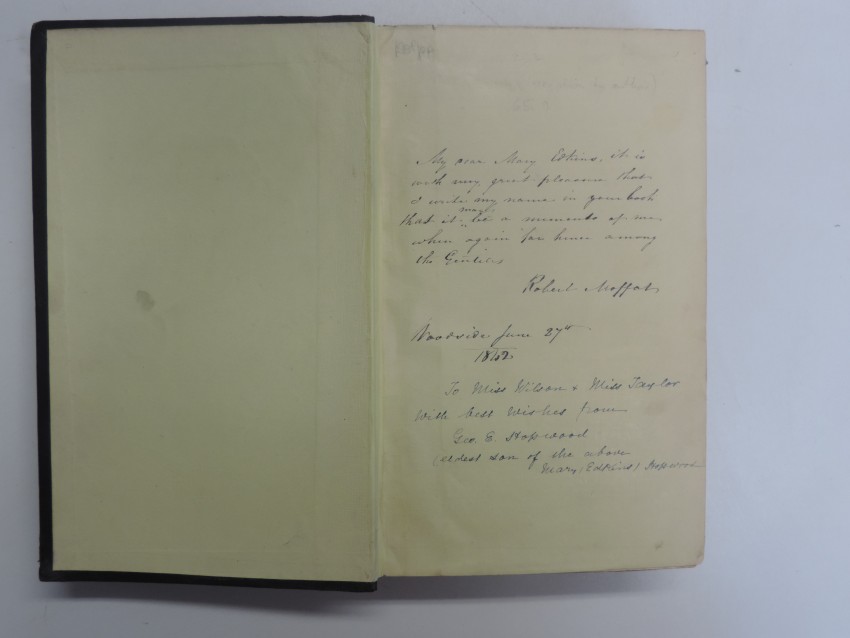 My dear Mary Edkins, it is
with very great pleasure that
I write my name in your book
may
that it be a memento of me
when again far hence among
the Gentiles
Robert Moffat
Woodside June 27th
To Miss Wilson & Miss Taylor
with best wishes from
Geo E. Hopwood
(eldest son of the above
Mary (Edkins) Hopwood